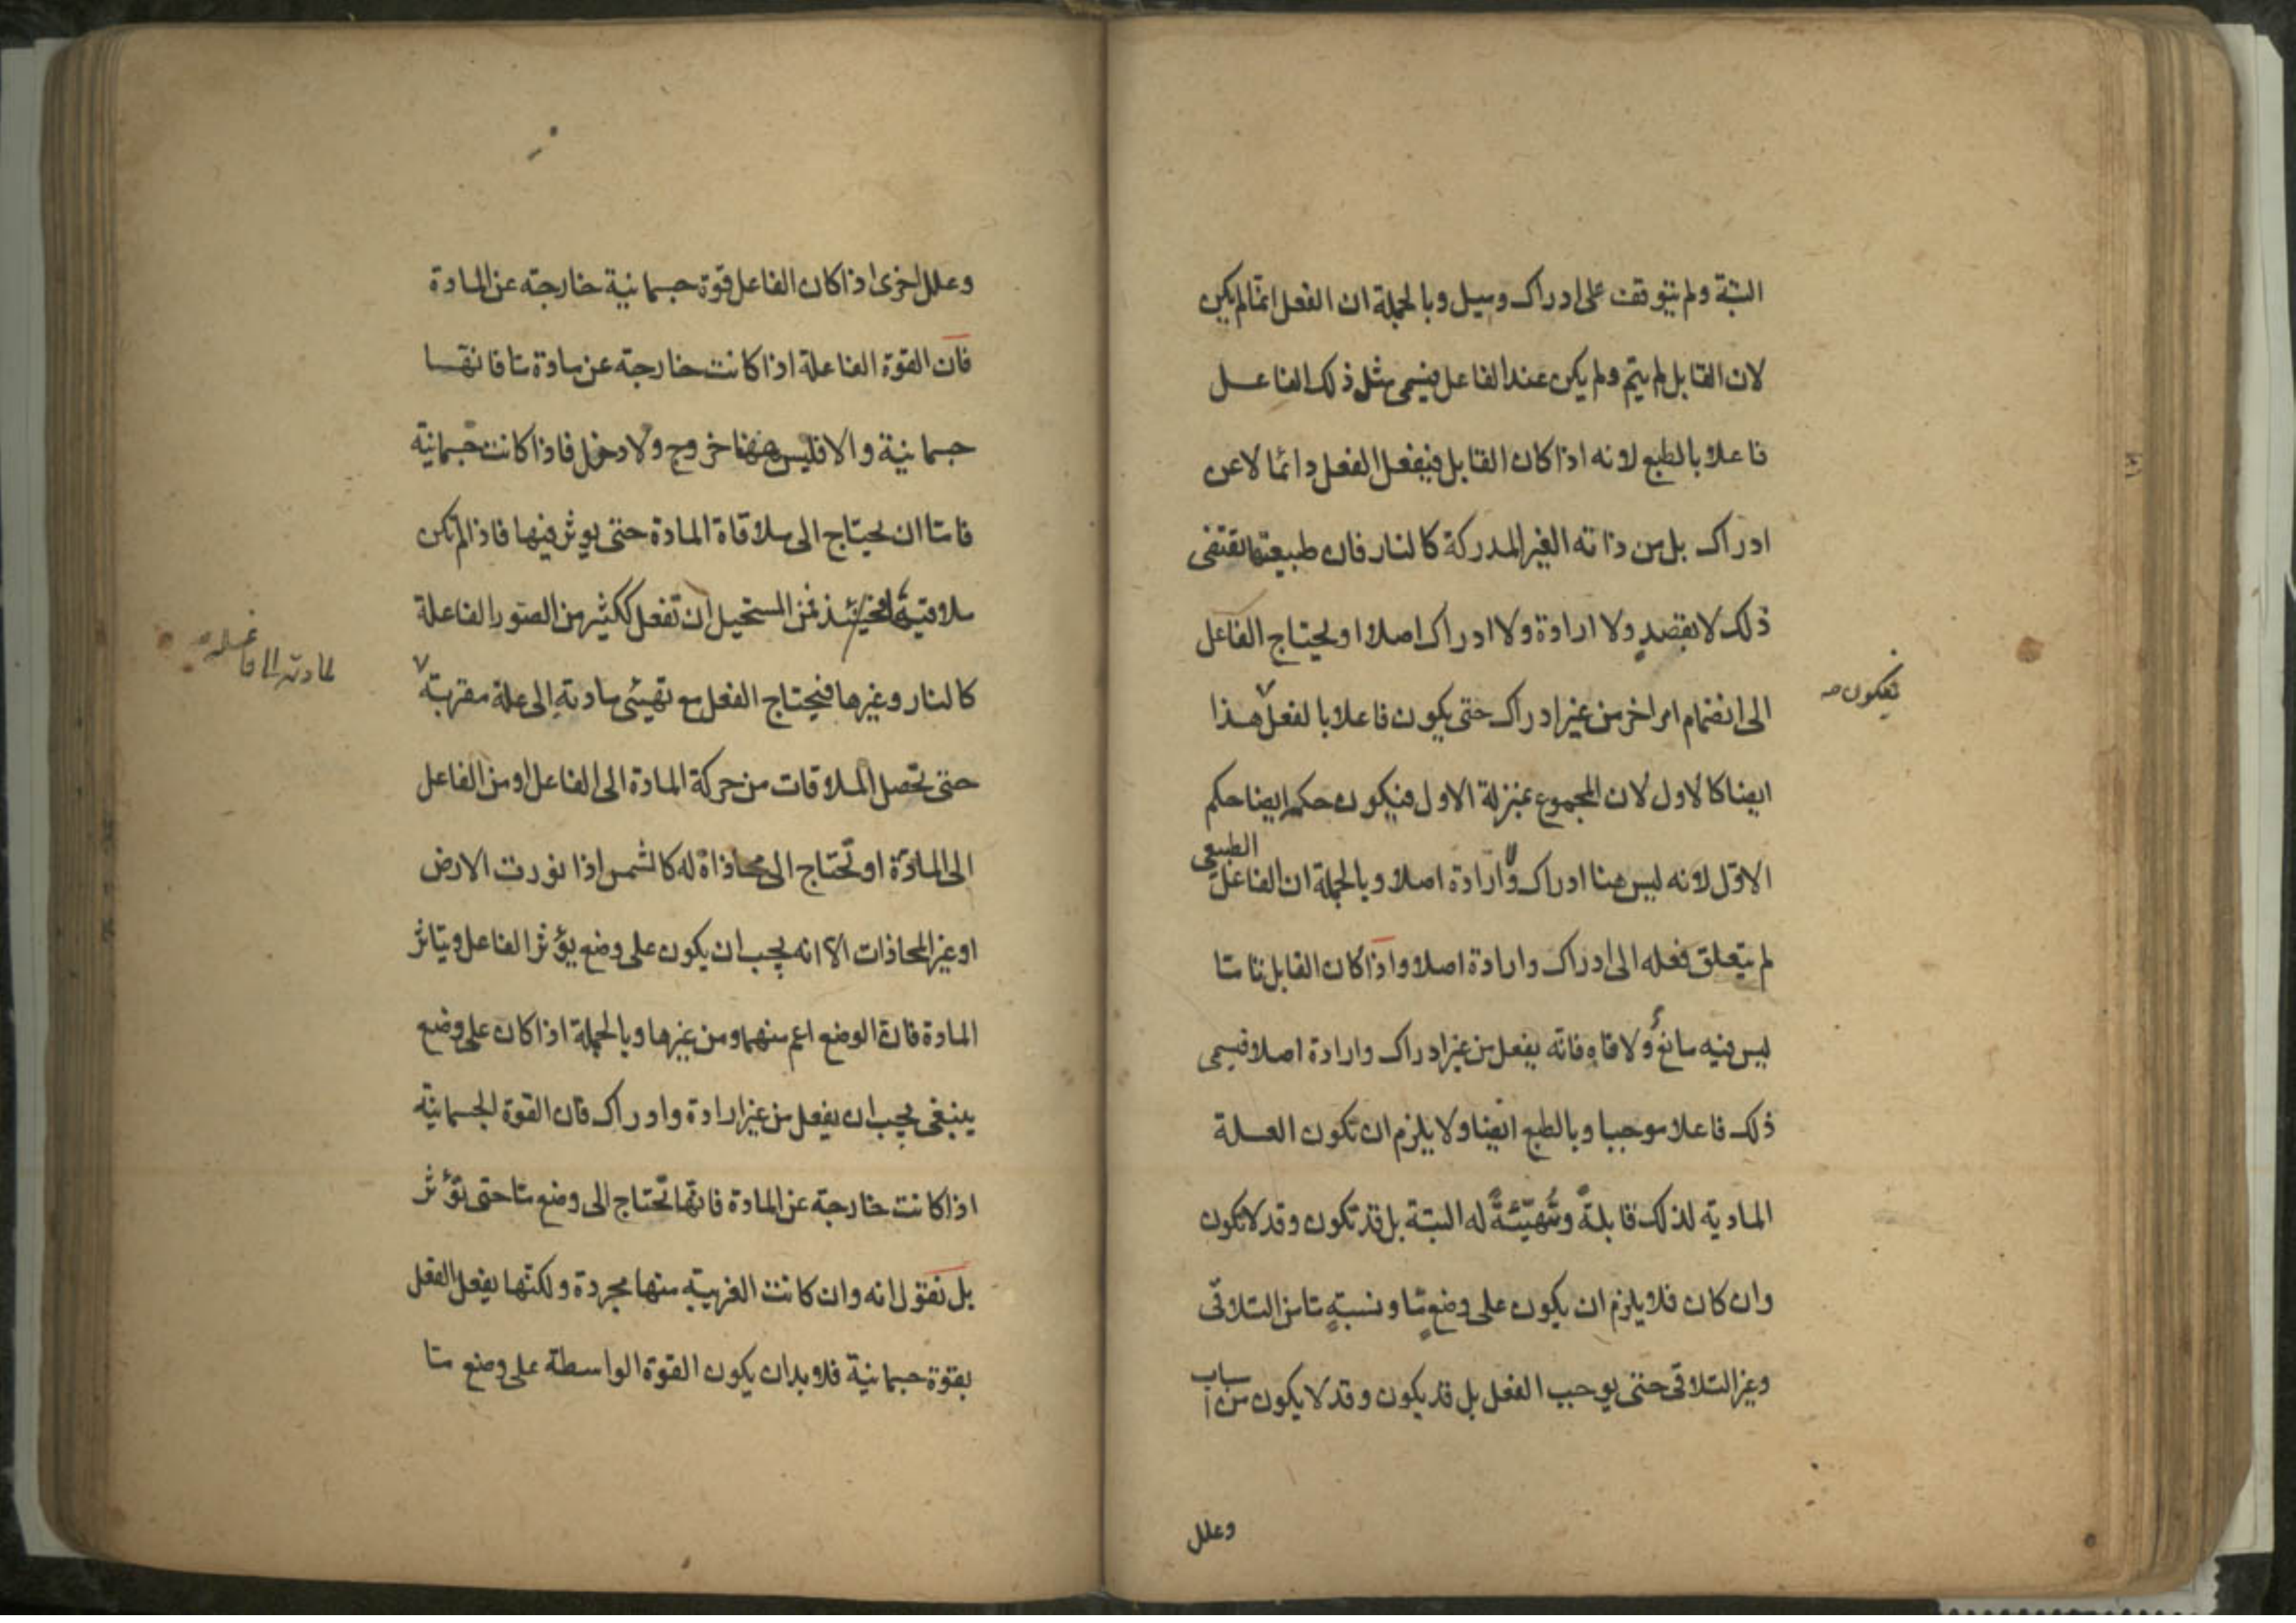 البتة ولم يتوقف على ادراك وميل وبالجملة ان الفعل انما لم يكن
لان القابل لم يتم ولم يكن عند الفاعل فيسمى مثل ذلك الفاعل
فاعلا بالطبع لانه اذا كان القابل فيفعل الفعل دائما لا عن
ادراك بل من ذاته الغير المدركة كالنار فان طبيعتها تقتضى
ذلك لا بقصد ولا ارادة ولا ادراك اصلا او يحتاج الفاعل
الى انضمام امر اخر من غير ادراك حتى يكون فاعلا بالفعل هذا
فيكون
ايضا كالاول لان المجموع بمنزلة الاول فيكون حكمه ايضا حكم
الاول لانه ليس هنا ادراك ولا ارادة اصلا وبالجملة ان الفاعل الطبيعى
لم يتعلق فعله الى ادراك وارادة اصلا واذا كان القابل تاما
ليس فيه مانع ولا قاه فانه يفعل من غير ادراك وارادة اصلا فيسمى
ذلك فاعلا موجبا وبالطبع ايضا ولا يلزم ان تكون العلة
المادية لذلك قابلةً ومتهيّئةً له البتة بل قد تكون وقد لا تكون
وان كان فلا يلزم ان يكون على وضعٍ ما ونسبةٍ ما من التلاقى
وغير التلاقى حتى يوجب الفعل بل قد يكون وقد لا يكون من اسباب
وعلل
وعلل اخرى اذا كان الفاعل قوة جسمانية خارجته عن المادة
فان القوة الفاعلة اذا كانت خارجته عن مادة ما فانها
جسمانية والا فليس ههنا خروج ولا دخل فاذا كانت جسمانية
فاما ان يحتاج الى ملاقاة المادة حتى يوثر فيها فاذا لم تكن
ملاقية لها فمن المستحيل ان تفعل ككثير من الصور الفاعلة
كالنار وغيرها فيحتاج الفعل مع تهيئى مادته الى علة مقربة
حتى تحصل الملاقات من حركة المادة الى الفاعل او من الفاعل
الى المادّة او تحتاج الى محاذاة له كالشمس اذا نورت الارض
او غير المحاذات الا انه يجب ان يكون على وضع يؤثر الفاعل ويتاثر
المادة فان الوضع اعم منهما ومن غيرها وبالجملة اذا كان على وضع
ينبغى يجب ان يفعل من غير ارادة وادراك فان القوة الجسمانية
اذا كانت خارجة عن المادة فانها تحتاج الى وضع ما حتى تؤثر
بل نقول انه وان كانت الغريبة منها مجردة ولكنها يفعل الفعل
بقوة جسمانية فلا بد ان يكون القوة الواسطة على وضع ما